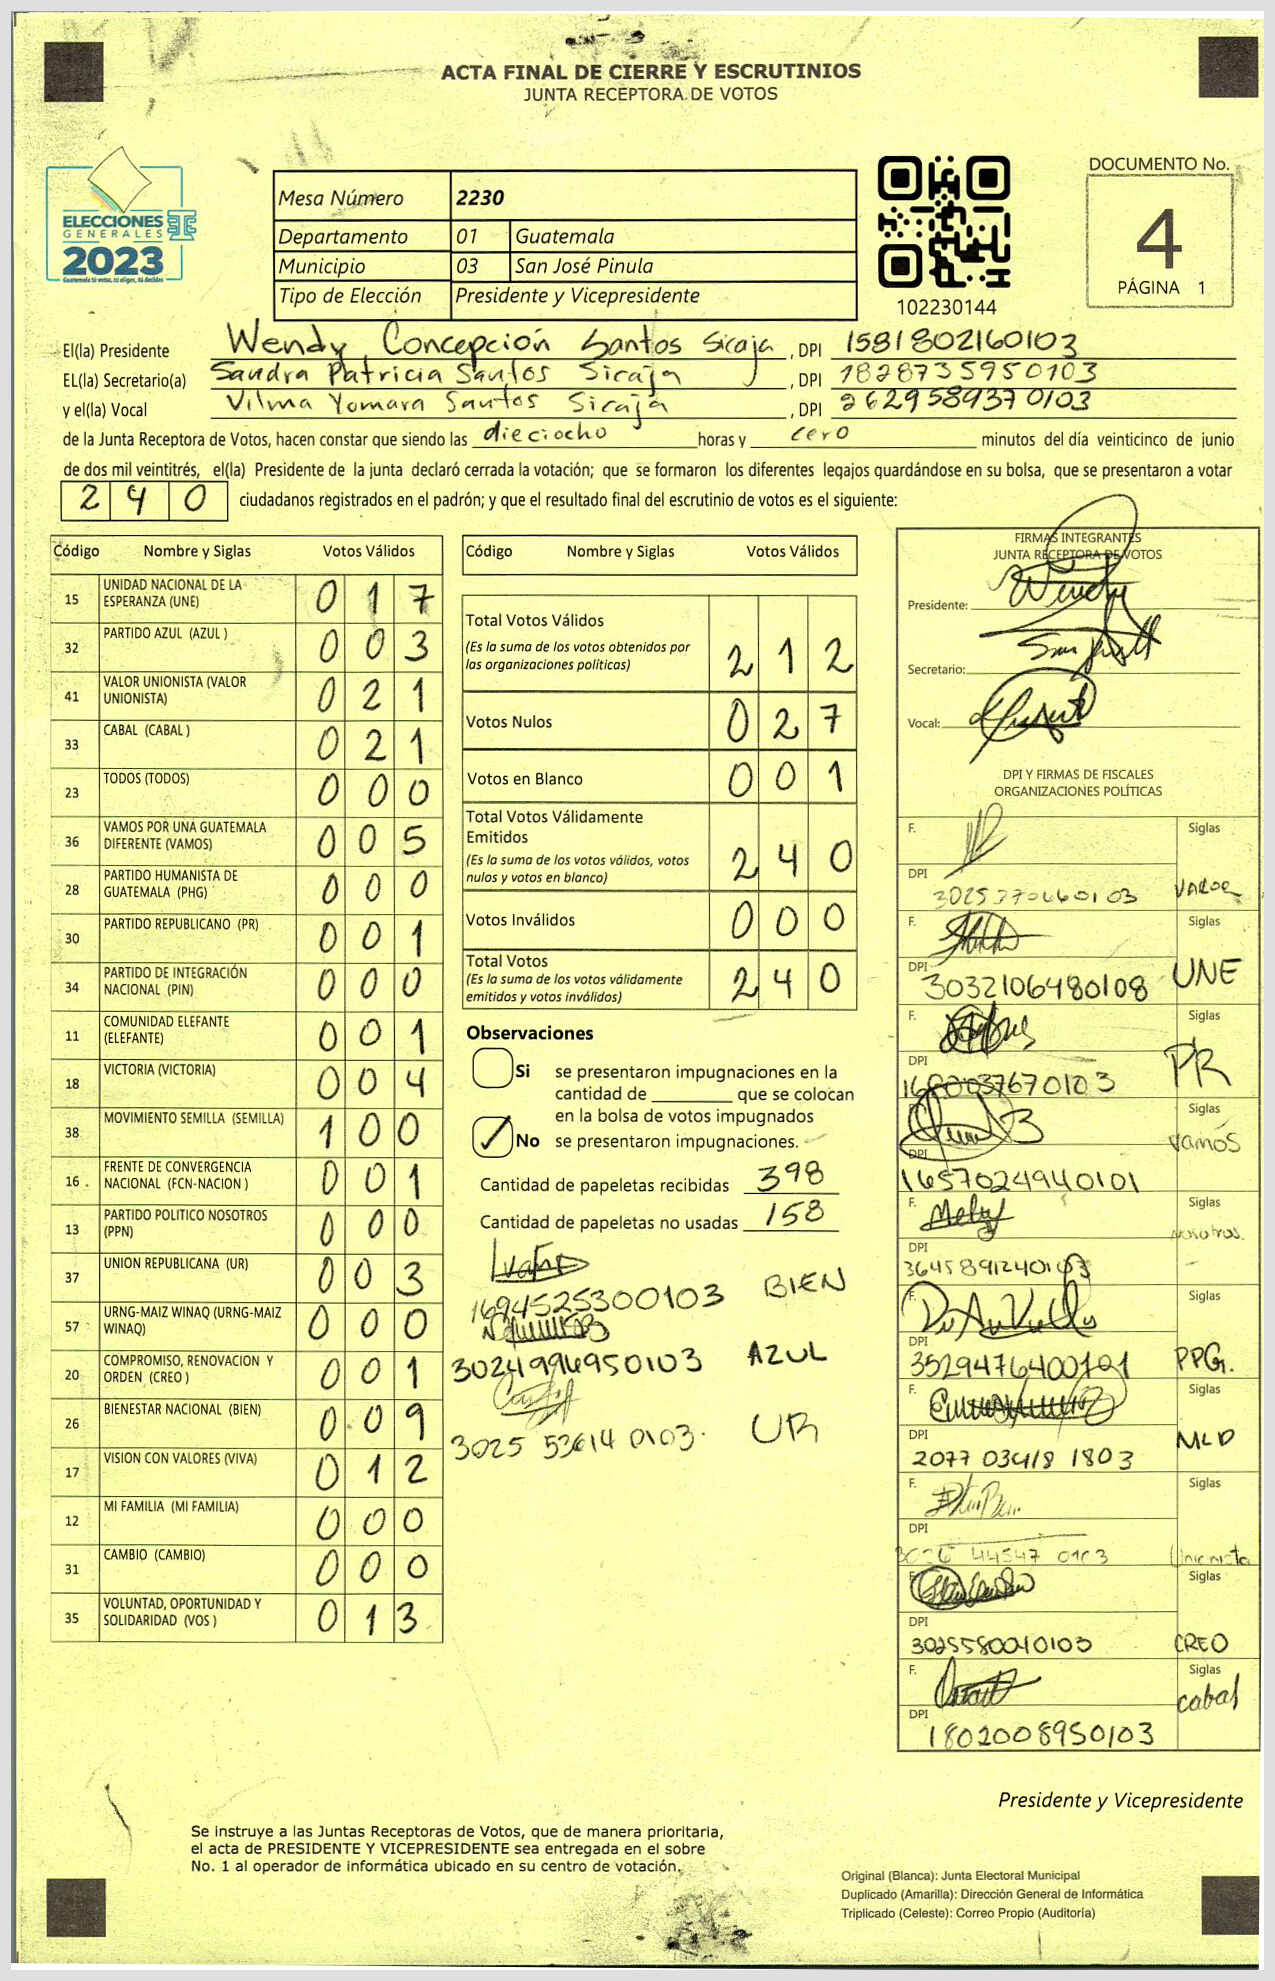 ACTA FINAL DE CIERRE Y ESCRUTINIOS
JUNTA RECEPTORA DE VOTOS
ELECCIONES
GENERALES
2023
Guatemala tú votas, tú eliges, tú decides
Mesa Número 2230
Departamento 01 Guatemala
Municipio 03 San José Pinula
Tipo de Elección Presidente y Vicepresidente
102230144
DOCUMENTO No.
4
PÁGINA 1
El(la) Presidente Wendy Concepción Santos Sicaja , DPI 1581802160103
EL(la) Secretario(a) Sandra Patricia Santos Sicaja , DPI 1828735950103
y el(la) Vocal Vilma Yomara Santos Sicaja , DPI 2629589370103
de la Junta Receptora de Votos, hacen constar que siendo las dieciocho horas y cero minutos del día veinticinco de junio
de dos mil veintitrés, el(la) Presidente de la junta declaró cerrada la votación; que se formaron los diferentes legajos quardándose en su bolsa, que se presentaron a votar
240 ciudadanos registrados en el padrón; y que el resultado final del escrutinio de votos es el siguiente:
Código Nombre y Siglas Votos Válidos
15 UNIDAD NACIONAL DE LA ESPERANZA (UNE) 017
32 PARTIDO AZUL (AZUL ) 003
41 VALOR UNIONISTA (VALOR UNIONISTA) 021
33 CABAL (CABAL ) 021
23 TODOS (TODOS) 000
36 VAMOS POR UNA GUATEMALA DIFERENTE (VAMOS) 005
28 PARTIDO HUMANISTA DE GUATEMALA (PHG) 000
30 PARTIDO REPUBLICANO (PR) 001
34 PARTIDO DE INTEGRACIÓN NACIONAL (PIN) 000
11 COMUNIDAD ELEFANTE (ELEFANTE) 001
18 VICTORIA (VICTORIA) 004
38 MOVIMIENTO SEMILLA (SEMILLA) 100
16 FRENTE DE CONVERGENCIA NACIONAL (FCN-NACION ) 001
13 PARTIDO POLITICO NOSOTROS (PPN) 000
37 UNION REPUBLICANA (UR) 003
57 URNG-MAIZ WINAQ (URNG-MAIZ WINAQ) 000
20 COMPROMISO, RENOVACION Y ORDEN (CREO ) 001
26 BIENESTAR NACIONAL (BIEN) 009
17 VISION CON VALORES (VIVA) 012
12 MI FAMILIA (MI FAMILIA) 000
31 CAMBIO (CAMBIO) 000
35 VOLUNTAD, OPORTUNIDAD Y SOLIDARIDAD (VOS ) 013
Código Nombre y Siglas Votos Válidos
Total Votos Válidos 212
(Es la suma de los votos obtenidos por
las organizaciones políticas)
Votos Nulos 027
Votos en Blanco 001
Total Votos Válidamente
Emitidos 240
(Es la suma de los votos válidos, votos
nulos y votos en blanco)
Votos Inválidos 000
Total Votos 240
(Es la suma de los votos válidamente
emitidos y votos inválidos)
Observaciones
Si se presentaron impugnaciones en la
cantidad de que se colocan
en la bolsa de votos impugnados
No se presentaron impugnaciones.
Cantidad de papeletas recibidas 398
Cantidad de papeletas no usadas 158
1694525300103 BIEN
3024994950103 AZUL
3025 53614 0103 UR
FIRMAS INTEGRANTES
JUNTA RECEPTORA DE VOTOS
Presidente: Wendy
Secretario:
Vocal:
DPI Y FIRMAS DE FISCALES
ORGANIZACIONES POLÍTICAS
F. Siglas
DPI 3025370660103 VALOR
F. Siglas
DPI 3032106480108 UNE
F. Siglas
DPI PR
Siglas
DPI 1657024940101 Vamos
F. Siglas
DPI 3645891240103 Nosotros
F. Siglas
DPI 3529476400101 PPG.
F. Siglas
DPI 2077 03418 1803 MLD
F. Siglas
DPI 3026 44547 0103 Unionista
F. Siglas
DPI 3025580040103 CREO
F. Siglas
DPI 1802008950103 cabal
Presidente y Vicepresidente
Se instruye a las Juntas Receptoras de Votos, que de manera prioritaria,
el acta de PRESIDENTE Y VICEPRESIDENTE sea entregada en el sobre
No. 1 al operador de informática ubicado en su centro de votación.
Original (Blanca): Junta Electoral Municipal
Duplicado (Amarilla): Dirección General de Informática
Triplicado (Celeste): Correo Propio (Auditoría)